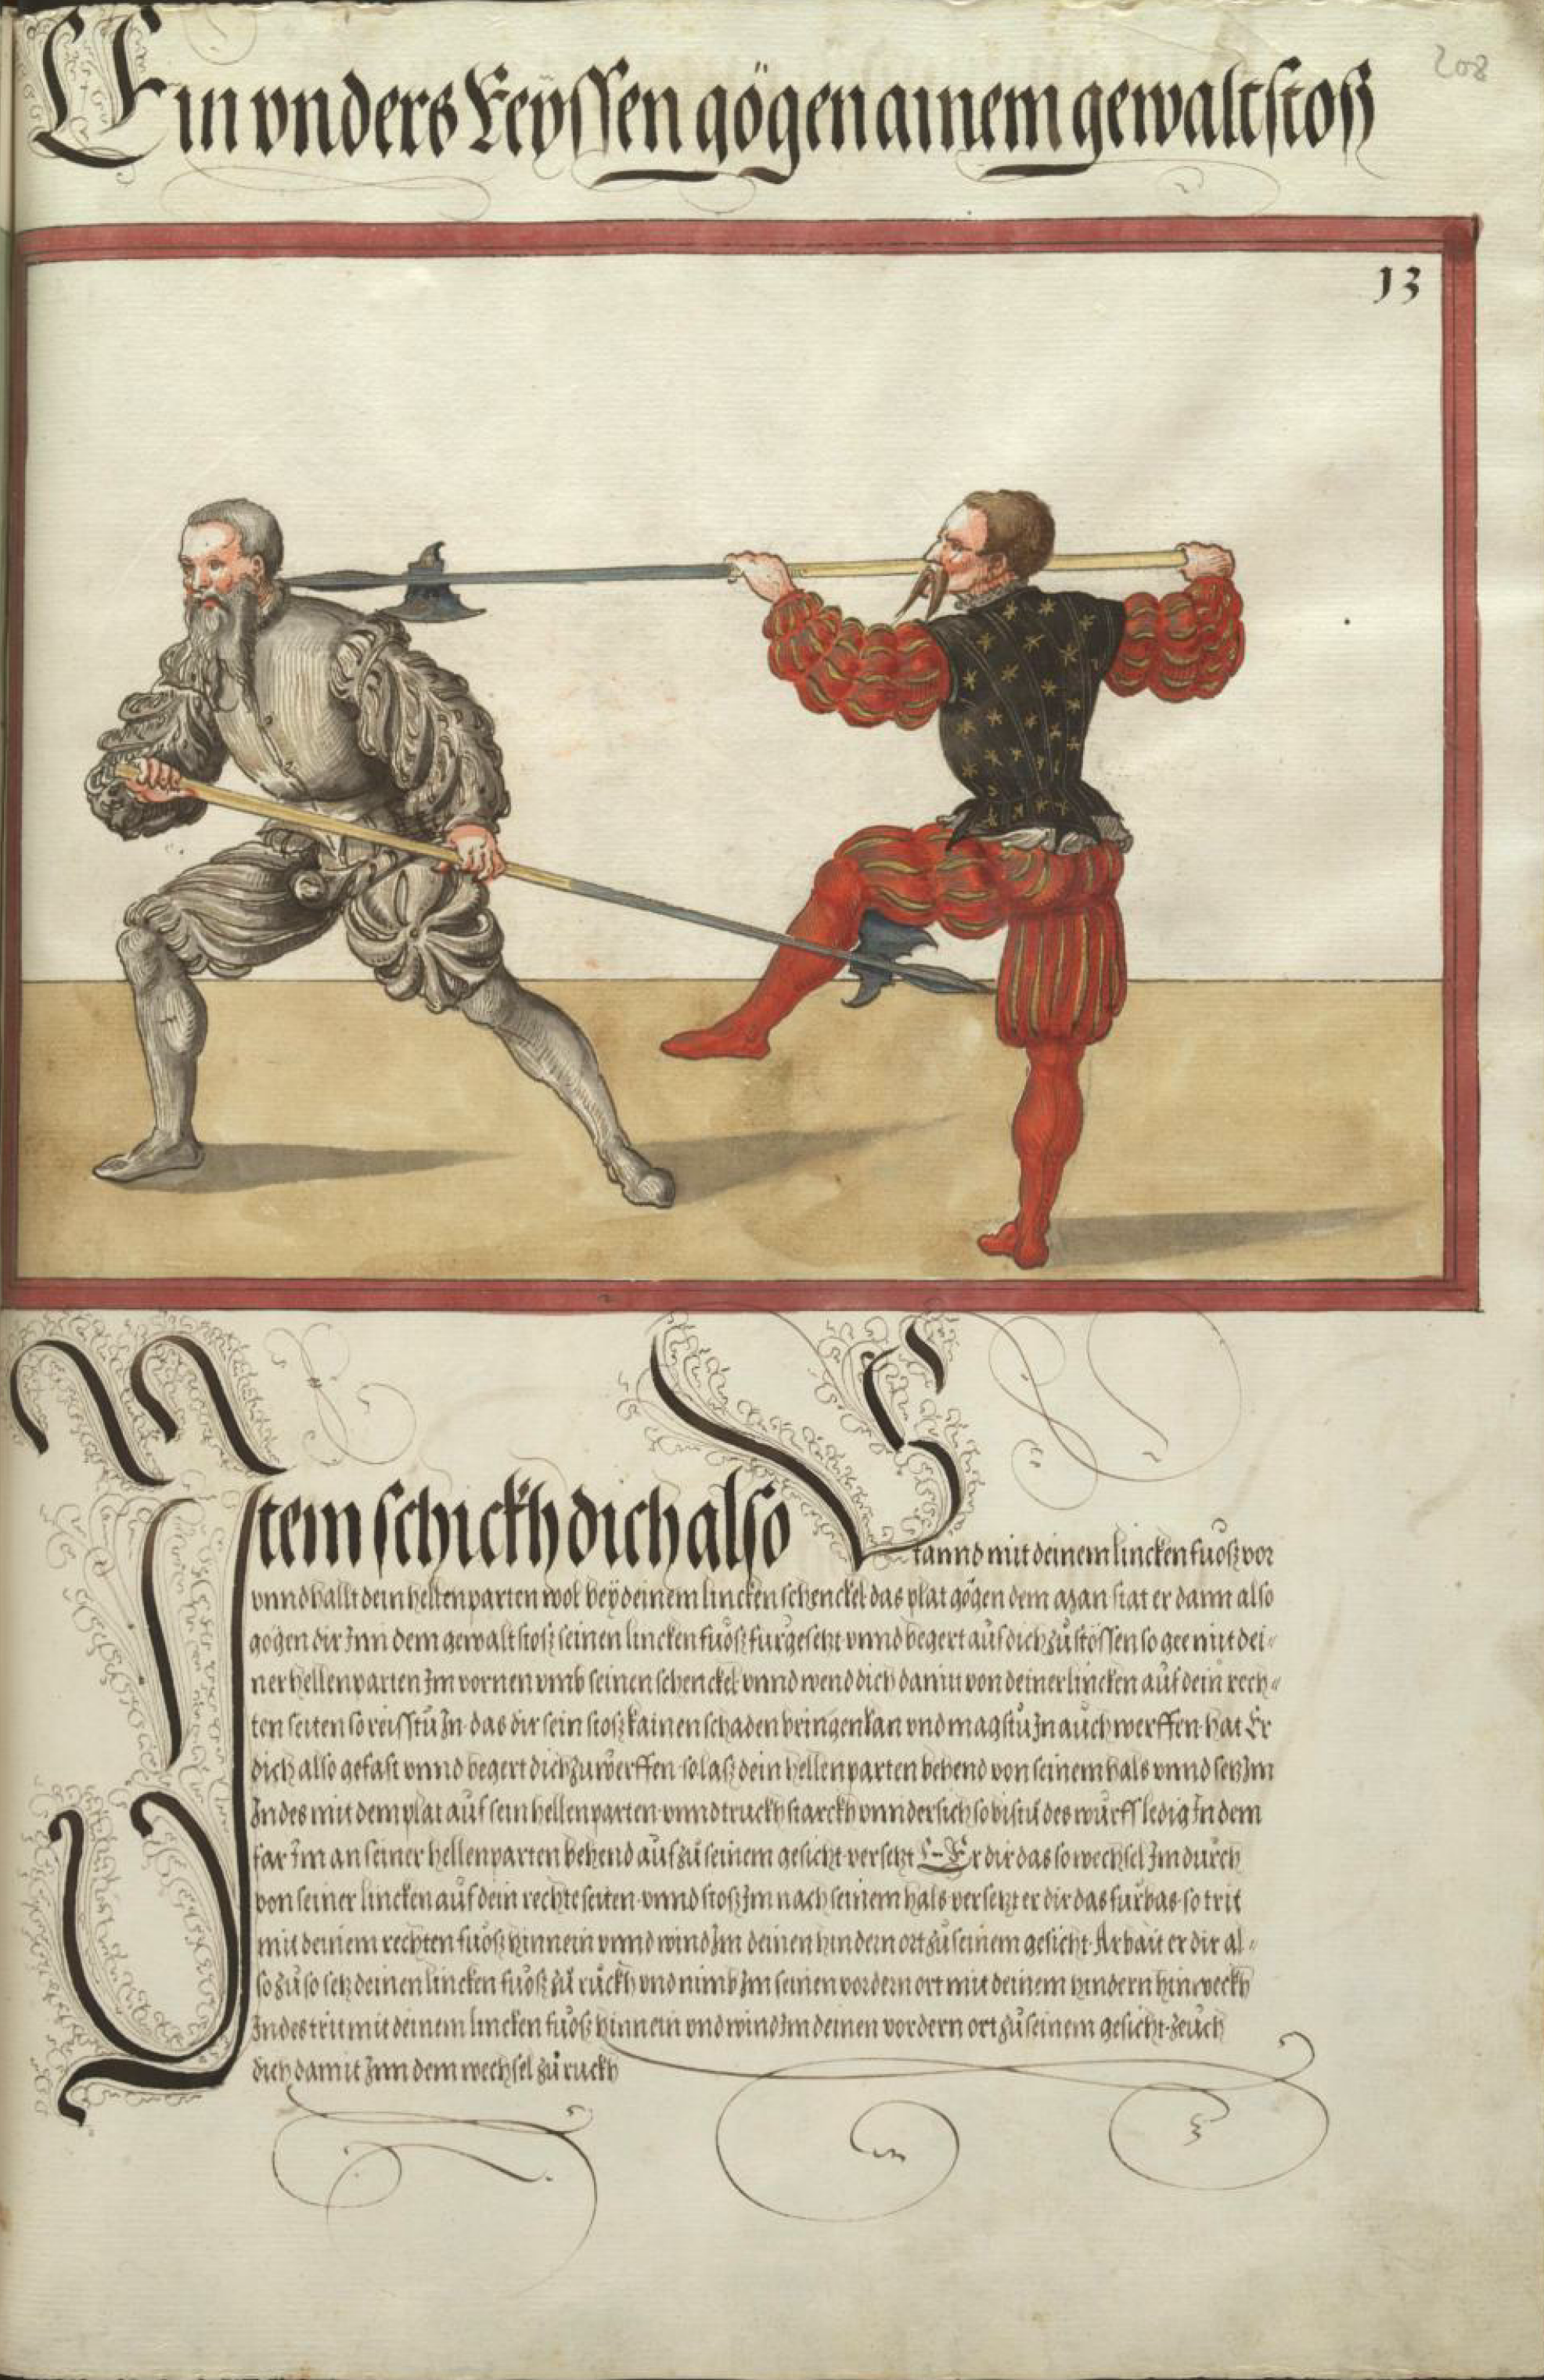 208
Ein unders Reyssen gögen ainem gewaltstosß
13
Item schickh dich also Stannd mit deinem lincken fuosß vor
vnnd hallt dein hellenparten wol beÿ deinem lincken schenckel das plat gögen dem man stat er dann also
gögen dir Inn dem gewaltstosß seinen lincken fuosß fürgesetzt vnnd begert auf dich zu stossen so gee mit dei-
ner hellenparten Im vornen vmb seinen schenckel vnnd wend dich damit von deiner lincken auf dein rech-
ten seiten so reisstu In das dir sein stosß kainen schaden bringen kan vnd magstu In auch werffen hat Er
dich allso gefast vnnd begert dich zu werffen so lasß dein hellenparten behend von seinem hals vnnd setz Im
Indes mit dem plat auf sein hellenparten vnnd truckh starckh vnndersich so bistu des wurffs ledig In dem
far Im an seiner hellenparten behend auf zu seinem gesicht versetzt Er dir das so wechsel Im durch
von seiner lincken auf dein rechte seiten vnnd stosß Im nach seinem hals versetzt er dir das furbas so trit
mit deinem rechten fuosß hinnein vnnd wind Im deinen hindern ort zu seinem gesicht Arbait er dir al-
so zu so setz deinen lincken fuosß zu ruckh vnd nimb Im seinen vordern ort mit deinem hindern hinweckh
Indes trit mit deinem lincken fuosß hinnein vnd wind Im deinen vordern ort zu seinem gesicht zeuch
dich damit Inn dem wechsel zu ruckh